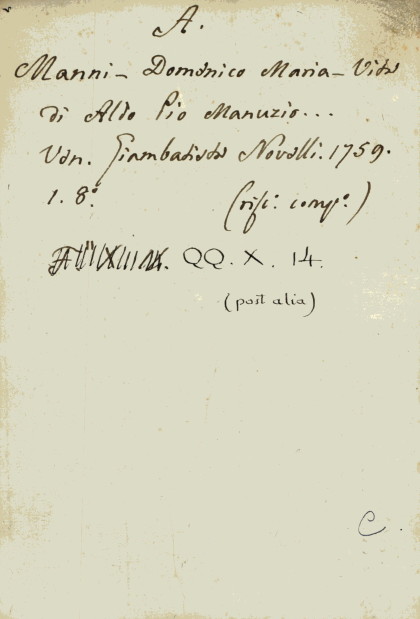 A.
Manni - Domenico Maria - Vita
di Aldo Pio Manuzio...
Ven. Giambatista Novelli. 1759.
1. 8.°
QQ. X. 14.
(post alia)
C.